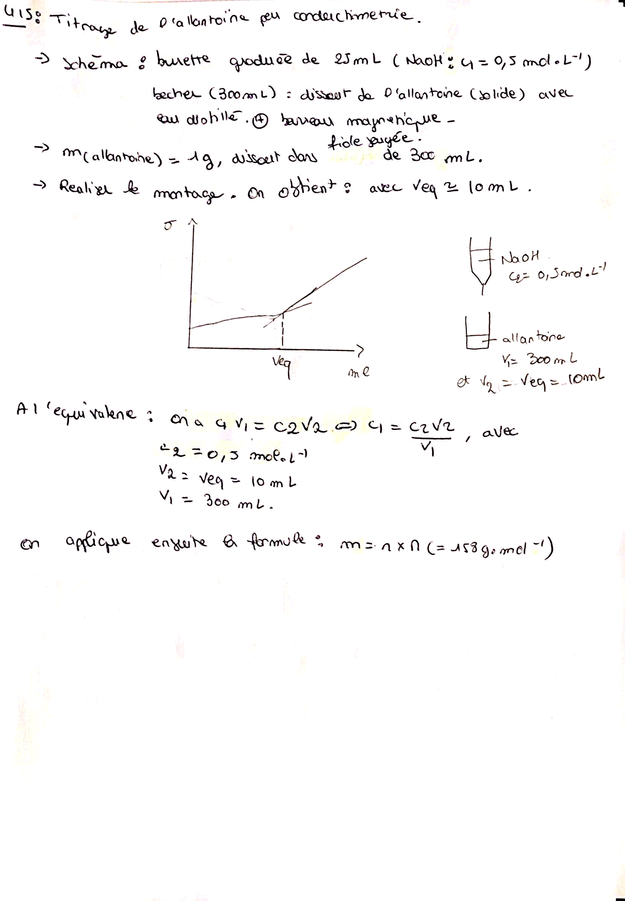 U15: Titrage de l'allantoïne par conductimétrie.
→ Schéma : burette graduée de 25 mL (NaOH : C1 = 0,5 mol.L-1)
becher (300 mL) : dissout de l'allantoïne (solide) avec
eau distillé. ⊕ barreau magnétique -
→ m(allantoïne) = 1g, dissout dans fiole jaugée de 300 mL.
→ Realiser le montage. On obtient : avec Veq ≃ 10 mL.
σ
NaOH
C2 = 0,5 mol.L-1
allantoïne
V1 = 300 mL
Veq
ml
et V2 = Veq = 10mL
A l'equivalene : On a C1V1 = C2V2 ⇔ C1 = C2V2/V1, avec
C2 = 0,5 mol.L-1
V2 = Veq = 10 mL
V1 = 300 mL.
on applique ensuite la formule : m = n × M (= 158 g.mol-1)